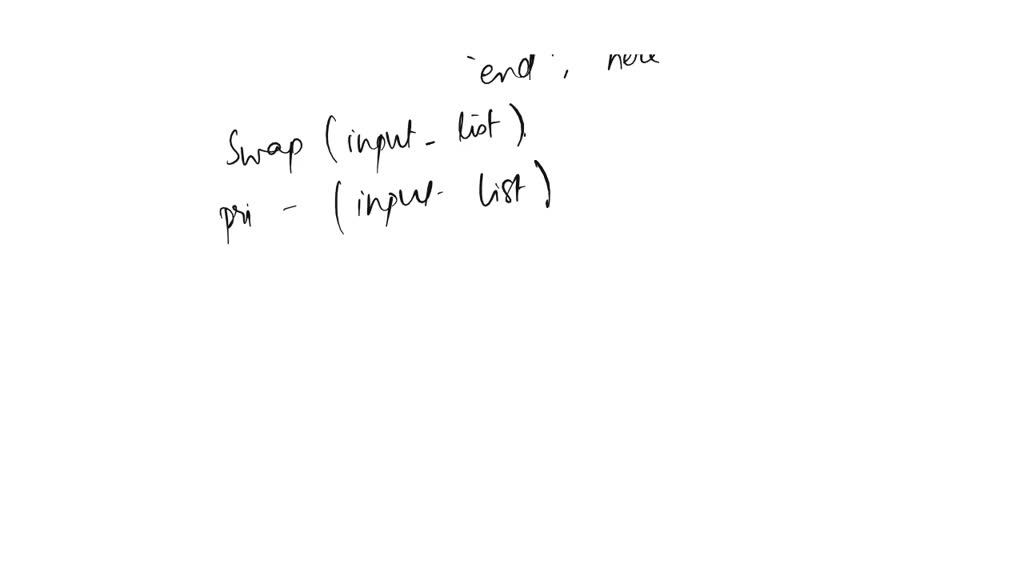 `end`,
Swap (input_list).
pri - (input- list)